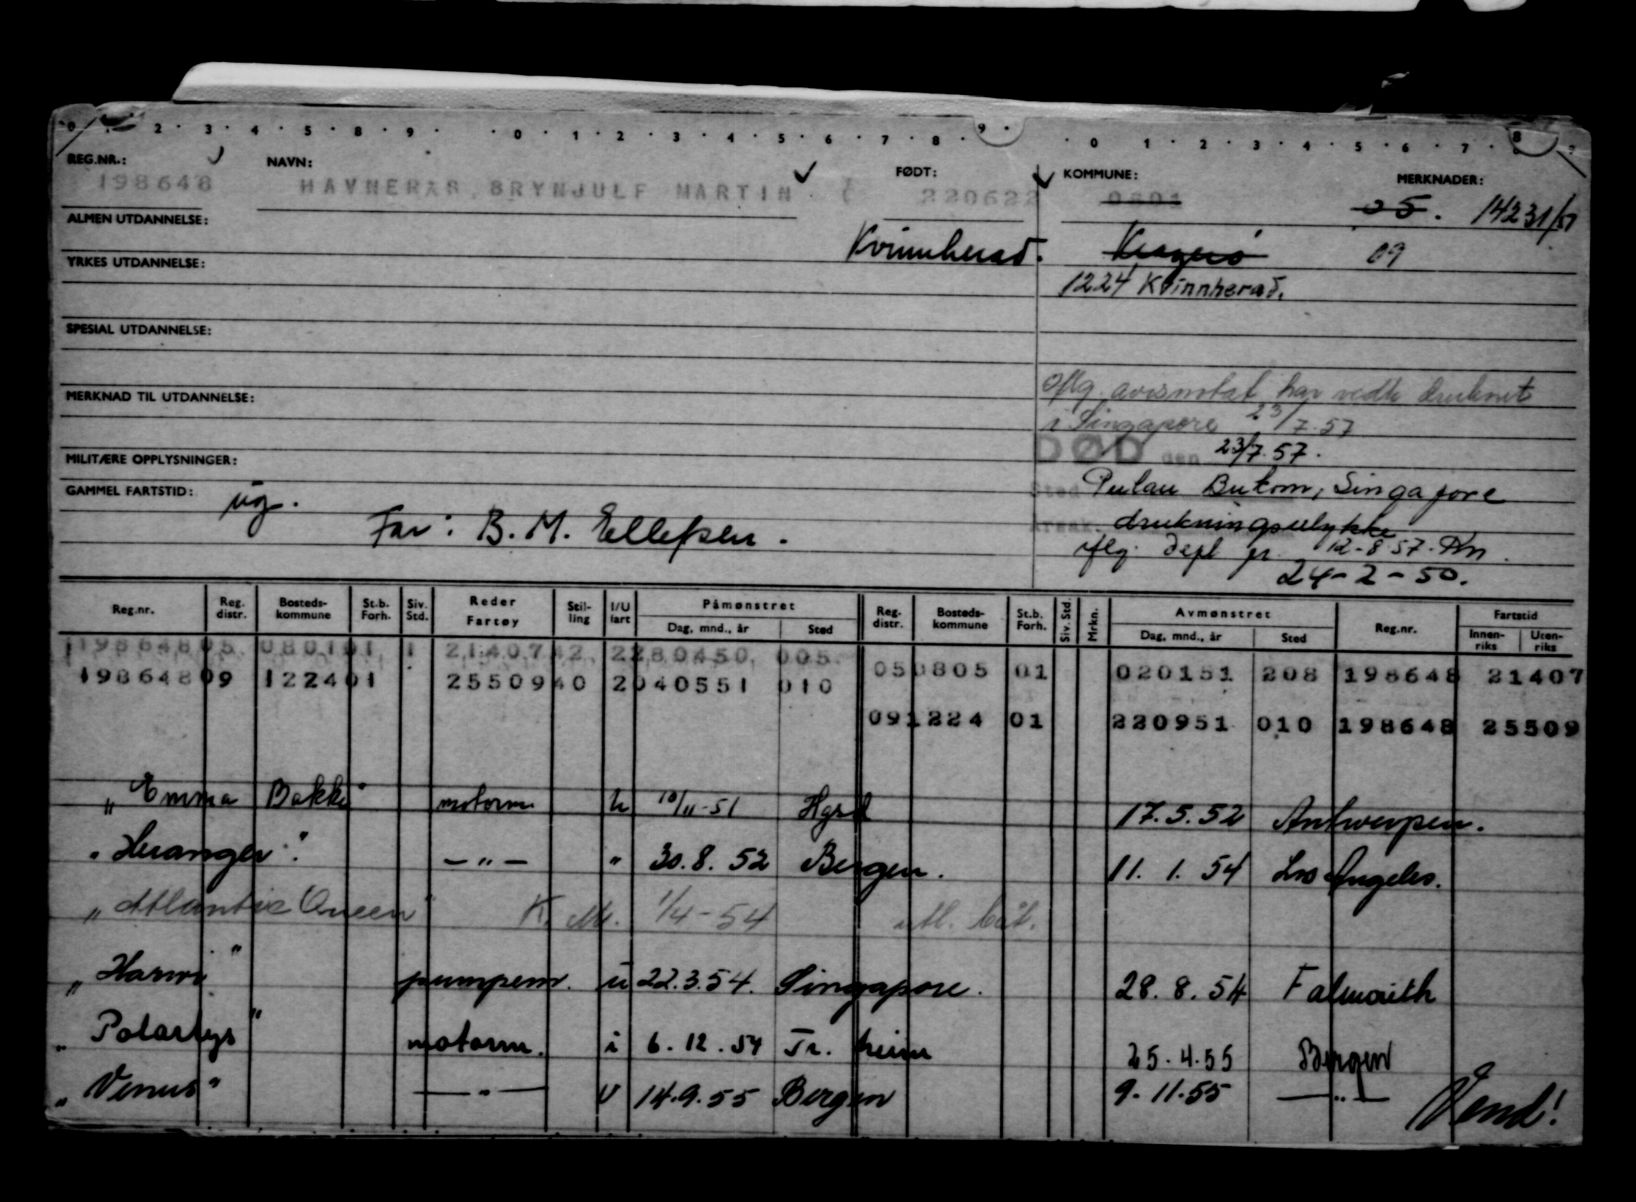 0 2 3 4 5 8 9 0 1 2 3 4 5 6 7 8 9 0 1 2 3 4 5 6 7 8
REG.NR.: NAVN: FØDT: KOMMUNE: MERKNADER:
198648 HAVNERÅS BRYNJULF MARTIN 220622 0801 05. 14231/51
ALMEN UTDANNELSE:
Kvinnherad. Kragerø 09
YRKES UTDANNELSE:
1224 Kvinnherad.
SPESIAL UTDANNELSE:
MERKNAD TIL UTDANNELSE:
iflg. avisnotat har vedk. druknet
i Singapore 23/7-57
MILITÆRE OPPLYSNINGER:
DØD den 23/7.57.
GAMMEL FARTSTID: ug.
Sted Pulau Bukom, Singapore
Far: B. M. Ellefsen.
Årsak. drukningsulykke
iflg. dept. 12-8-57.
24-2-50.
Reg.nr. Reg. distr. Bosteds-kommune St.b. Forh. Siv. Std. Reder Fartøy Stil-ling I/U fart Påmønstret Dag, mnd., år Sted Reg-distr. Bosteds-kommune St.b. Forh. Siv. Std. Mrkn. Avmønstret Dag, mnd., år Sted Reg.nr. Fartstid Innen-riks Uten-riks
198648 05 0801 01 1 2140742 2 280450 005
05 0805 01 020151 208 198648 21407
198648 09 1224 01 2550940 2 040551 010
09 1224 01 220951 010 198648 25509
"Emma Bakke" motorm u 10/11-51 Hgsd 17.5.52 Antwerpen.
"Heranger". —"— " 30.8.52 Bergen. 11.1.54 Los Angeles.
"Atlantic Queen" 1/4-54
"Harwi" pumpem. u 22.3.54. Singapore. 28.8.54 Falmouth
"Polarlys" motorm. i 6.12.54 Tr.heim 25.4.55 Bergen
"Venus" —"— U 14.9.55 Bergen 9.11.55 —"—
Vend!